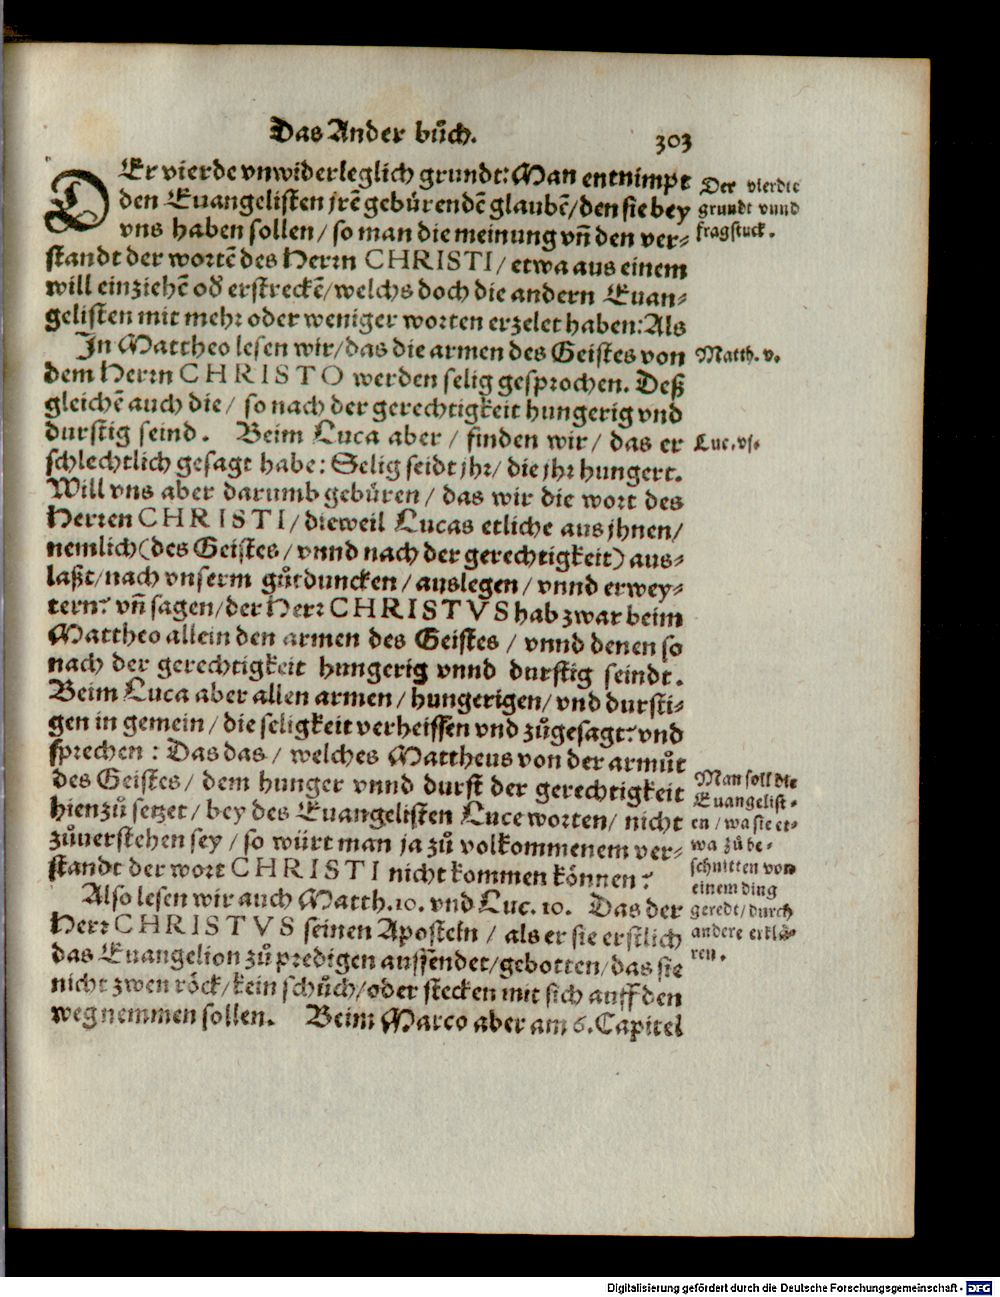 Das Ander bůch.
303
DEr vierde vnwiderleglich grundt: Man entnimpt
den Euangelisten jrē gebürendē glaubē/ den sie bey
vns haben sollen/ so man die meinung vñ den ver-
standt der wortē des Herrn CHRISTI/ etwa aus einem
will einziehē oď erstreckē/ welchs doch die andern Euan-
gelisten mit mehr oder weniger worten erzelet haben: Als
In Mattheo lesen wir/ das die armen des Geistes von
dem Herrn CHRISTO werden selig gesprochen. Deß
gleichē auch die/ so nach der gerechtigkeit hungerig vnd
durstig seind. Beim Luca aber/ finden wir/ das er
schlechtlich gesagt habe: Selig seidt jhr/ die jhr hungert.
Will vns aber darumb gebüren/ das wir die wort des
Herren CHRISTI/ dieweil Lucas etliche aus jhnen/
nemlich (des Geistes/ vnnd nach der gerechtigkeit) aus-
laßt/ nach vnserm gůtduncken/ auslegen/ vnnd erwey-
tern? vñ sagen/ der Herr CHRISTVS hab zwar beim
Mattheo allein den armen des Geistes/ vnnd denen so
nach der gerechtigkeit hungerig vnnd durstig seindt.
Beim Luca aber allen armen/ hungerigen/ vnd dursti-
gen in gemein/ die seligkeit verheissen vnd zůgesagt? vnd
sprechen: Das das/ welches Mattheus von der armůt
des Geistes/ dem hunger vnnd durst der gerechtigkeit
hienzů setzet/ bey des Euangelisten Luce worten/ nicht
zůuerstehen sey/ so würt man ja zů volkommenem ver-
standt der wort CHRISTI nicht kommen können?
Also lesen wir auch Matth. 10. vnd Luc. 10. Das der
Herr CHRISTVS seinen Aposteln/ als er sie erstlich
das Euangelion zů predigen aussendet/ gebotten/ das sie
nicht zwen röck/ kein schůch/ oder stecken mit sich auff den
weg nemmen sollen. Beim Marco aber am 6. Capitel
Der vierdte
grundt vnnd
fragstuck.
Matth. v.
Luc. vj.
Man soll die
Euangelist-
en/ wa sie et-
wa zů be-
schnitten von
einem ding
geredt/ durch
andere erklä-
ren.
Digitalisierung gefördert durch die Deutsche Forschungsgemeinschaft - DFG